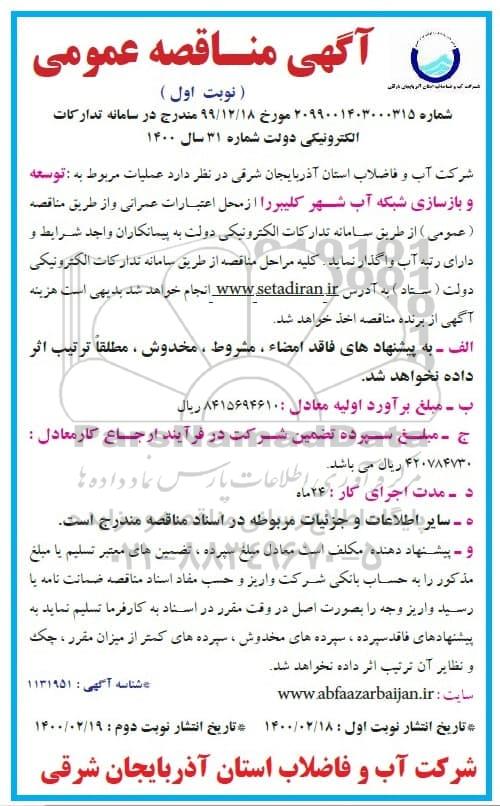 آگهی مناقصه عمومی
شرکت آب و فاضلاب استان آذربایجان شرقی
( نوبت اول )
شماره ۲۰۹۹۰۰۱۴۰۳۰۰۰۳۱۵ مورخ ۹۹/۱۲/۱۸ مندرج در سامانه تدارکات
الکترونیکی دولت شماره ۳۱ سال ۱۴۰۰
شرکت آب و فاضلاب استان آذربایجان شرقی در نظر دارد عملیات مربوط به : توسعه
و بازسازی شبکه آب شهر کلیبر را ازمحل اعتبارات عمرانی واز طریق مناقصه
( عمومی ) از طریق سامانه تدارکات الکترونیکی دولت به پیمانکاران واجد شرایط و
دارای رتبه آب واگذار نماید . کلیه مراحل مناقصه از طریق سامانه تدارکات الکترونیکی
دولت ( ستاد ) به آدرس www.setadiran.ir انجام خواهد شد بدیهی است هزینه
آگهی از برنده مناقصه اخذ خواهد شد.
الف ـ به پیشنهاد های فاقد امضاء ، مشروط ، مخدوش ، مطلقاً ترتیب اثر
داده نخواهد شد.
ب ـ مبلغ برآورد اولیه معادل : ۸۴۱۵۶۹۴۶۱۰ ریال
ج ـ مبلغ سپرده تضمین شرکت در فرآیند ارجاع کارمعادل :
۴۲۰۷۸۴۷۳۰ ریال می باشد.
د ـ مدت اجرای کار : ۲۴ماه
ه ـ سایر اطلاعات و جزئیات مربوطه در اسناد مناقصه مندرج است.
و ـ پیشنهاد دهنده مکلف است معادل مبلغ سپرده ، تضمین های معتبر تسلیم یا مبلغ
مذکور را به حساب بانکی شرکت واریز و حسب مفاد اسناد مناقصه ضمانت نامه یا
رسید واریز وجه را بصورت اصل در وقت مقرر در اسناد به کارفرما تسلیم نماید به
پیشنهادهای فاقدسپرده ، سپرده های مخدوش ، سپرده های کمتر از میزان مقرر ، چک
و نظایر آن ترتیب اثر داده نخواهد شد.
*شناسه آگهی : ۱۱۳۱۹۵۱
سایت : www.abfaazarbaijan.ir
*تاریخ انتشار نوبت اول : ۱۴۰۰/۰۲/۱۸ *تاریخ انتشار نوبت دوم : ۱۴۰۰/۰۲/۱۹
شرکت آب و فاضلاب استان آذربایجان شرقی
ParsNamadData
مرکز فرآوری اطلاعات پارس نماد داده ها
۰۲۱-۸۸۳۴۹۶۷۰-۵